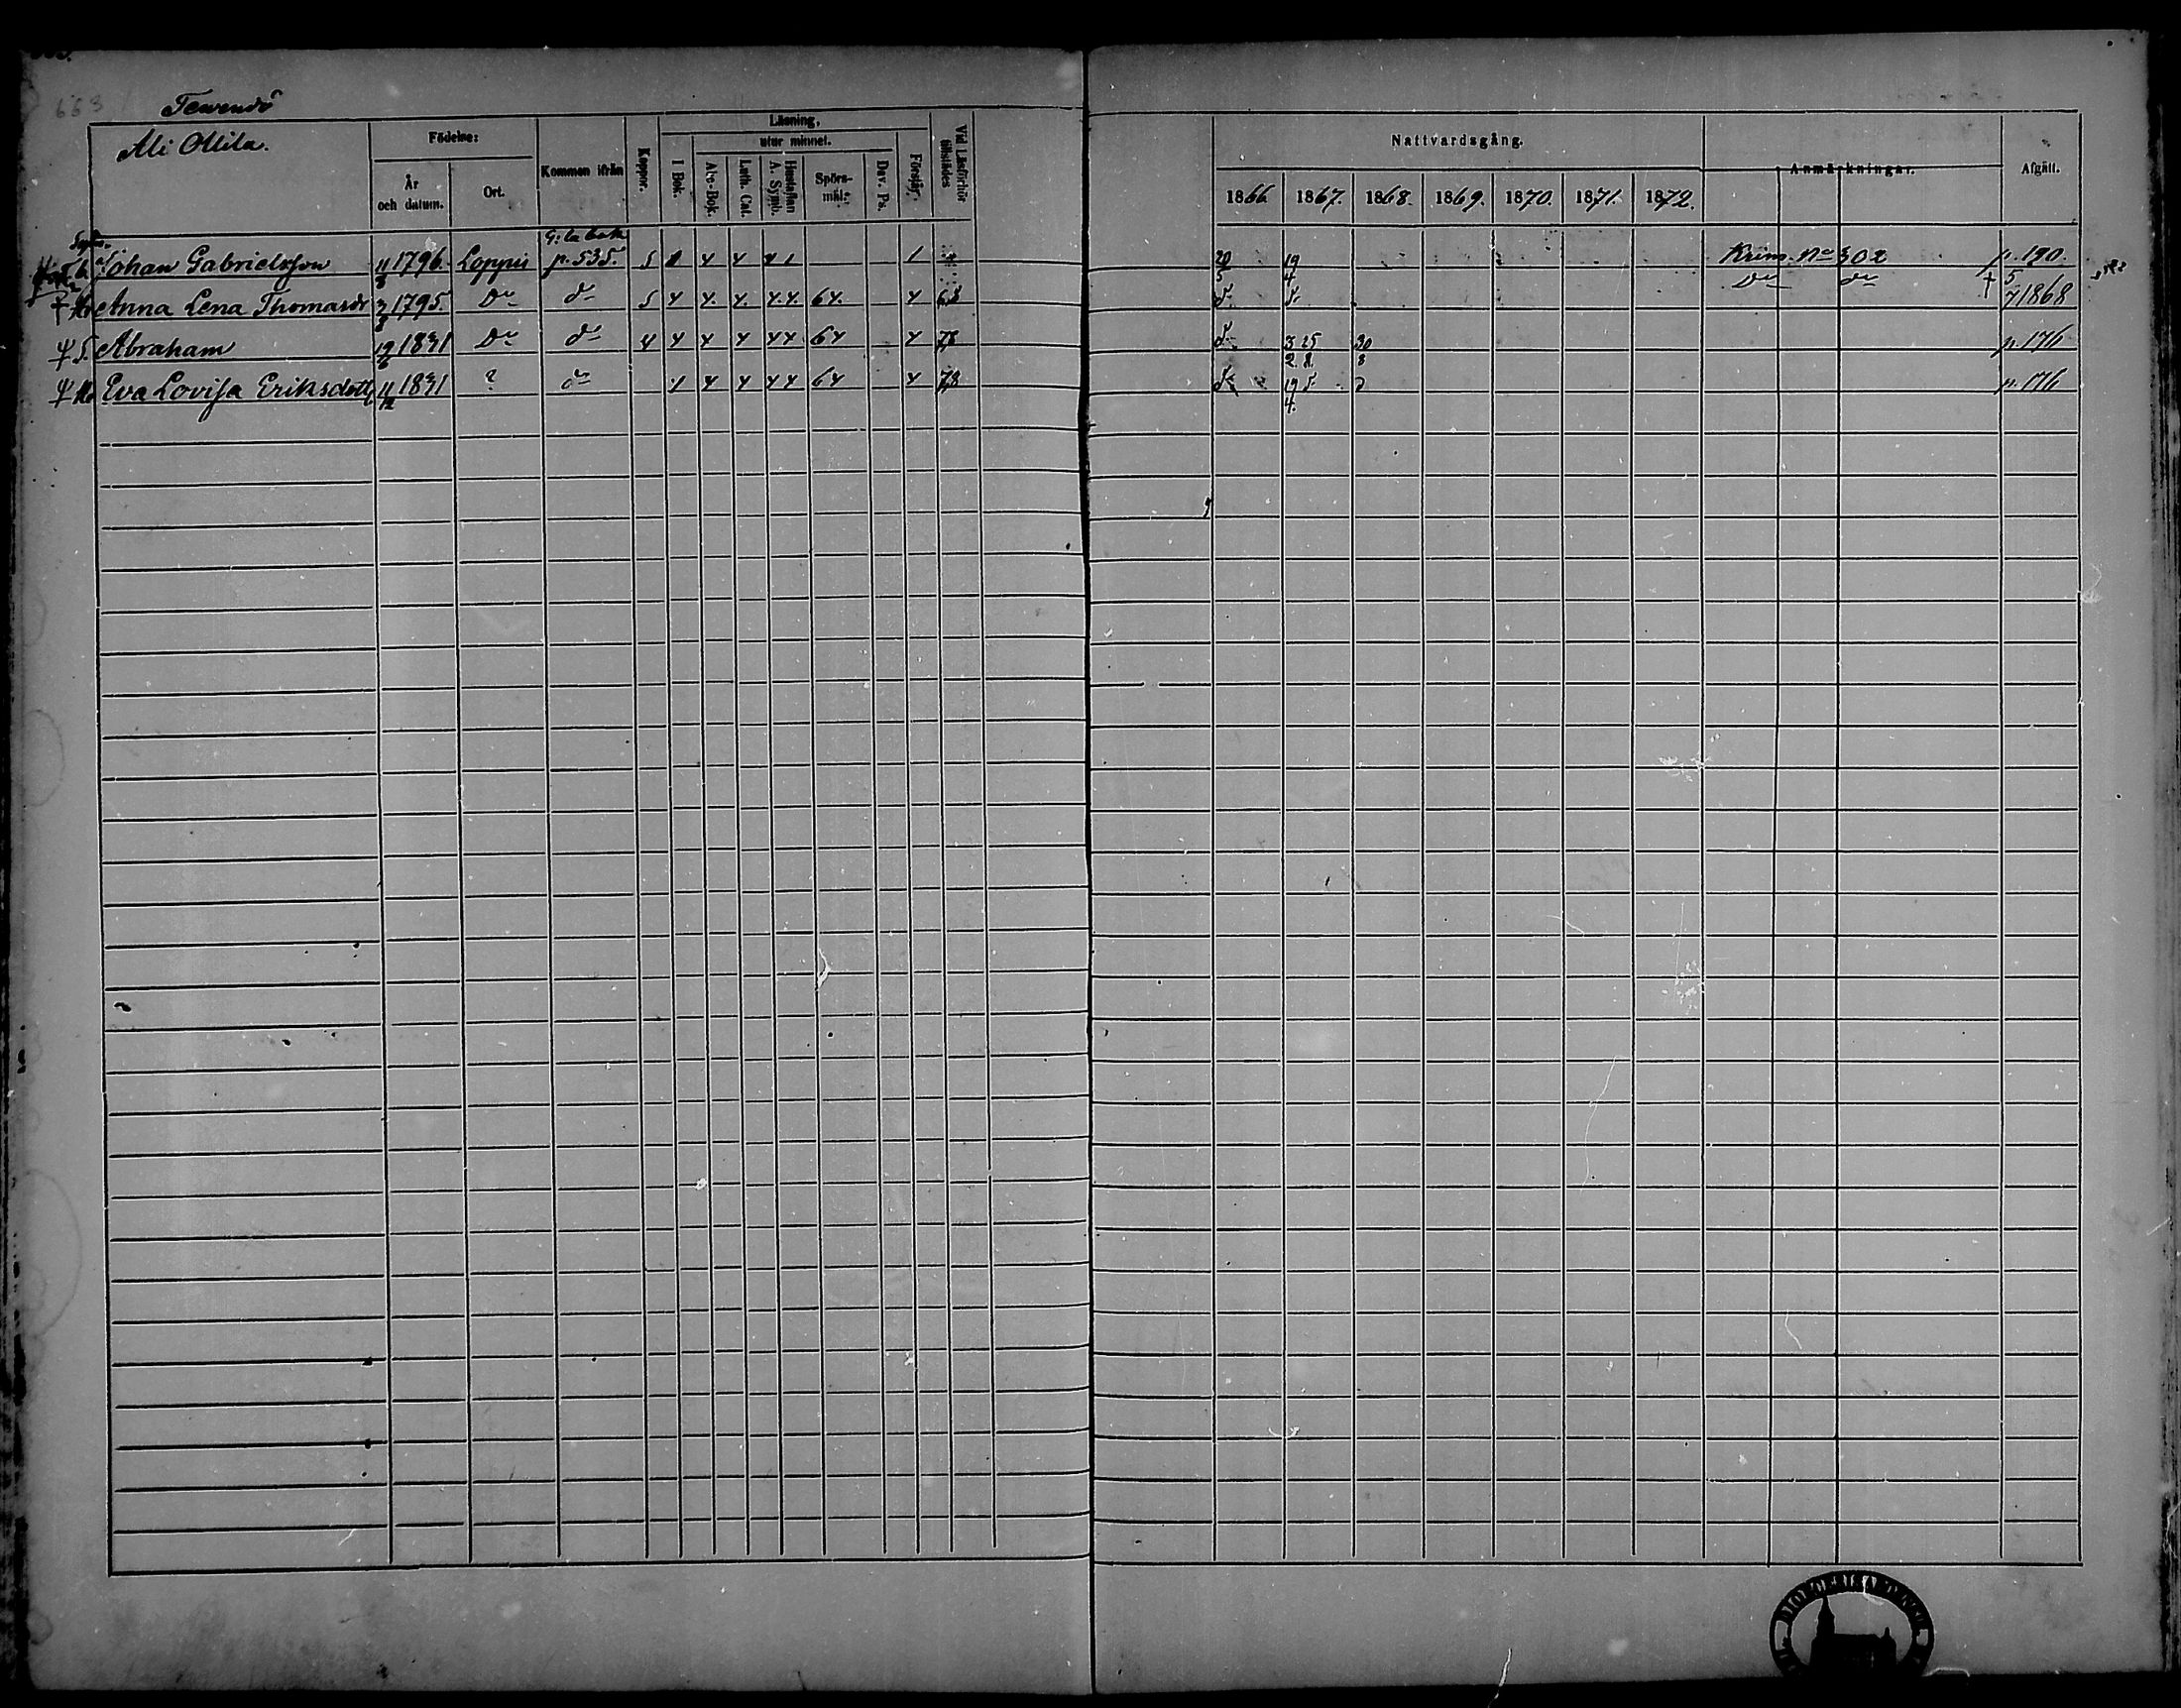 663
Ali Ollila.
Födelse:
År och datum.
Ort.
Kommen ifrån
Koppor.
Läsning,
I Bok.
utur minnet.
Abc-Bok.
Luth. Cat.
Hustaflan A. Symb.
Spörsmål.
Dav. Ps.
Förstår.
Vid Läsförhör tillstädes
Nattvardsgång.
1866. 1867. 1868. 1869. 1870. 1871. 1872.
Anmärkningar.
Afgått.
G:la bok
Johan Gabrielsson 11/8 1796. Loppis p. 535. 5 4 4 4 1 1 20/5 19/4. Krims. No 302 p. 190.
Anna Lena Thomasdr 3/3 1795. Do do 5 4 4. 4. 4.4. 64. 4 68 do do Do do † 5/7 1868
Abraham 19/6 1831 Do do 4 4 4 4 44 64 4 78 do 3/2 25/8 30/8 p. 176
Eva Lovisa Eriksdotter 11/12 1831 ? do 4 4 4 44 64 4 78 do 19/4. do p. 176